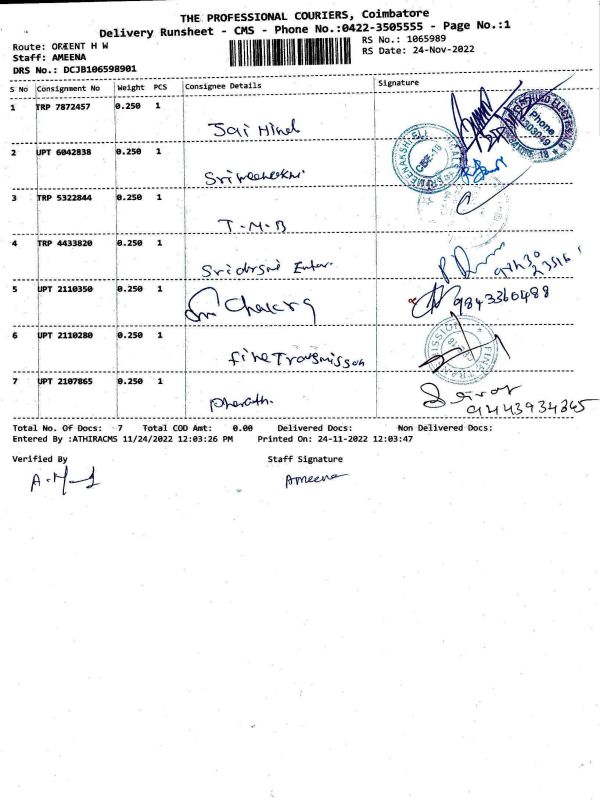 THE PROFESSIONAL COURIERS, Coimbatore
Delivery Runsheet - CMS - Phone No.:0422-3505555 - Page No.:1
Route: ORIENT H W
RS No.: 1065989
Staff: AMEENA
RS Date: 24-Nov-2022
DRS No.: DCJB106598901
S No Consignment No Weight PCS Consignee Details Signature
1 TRP 7872457 0.250 1
Jai Hind
2 UPT 6042838 0.250 1
Srimeenakshi
3 TRP 5322844 0.250 1
T-M-B
4 TRP 4433820 0.250 1
5 UPT 2110350 0.250 1
Sri Chakra
9843360488
6 UPT 2110280 0.250 1
fine Transmission
7 UPT 2107865 0.250 1
Total No. Of Docs: 7 Total COD Amt: 0.00 Delivered Docs: Non Delivered Docs:
Entered By :ATHIRACMS 11/24/2022 12:03:26 PM Printed On: 24-11-2022 12:03:47
Verified By Staff Signature
Ameena